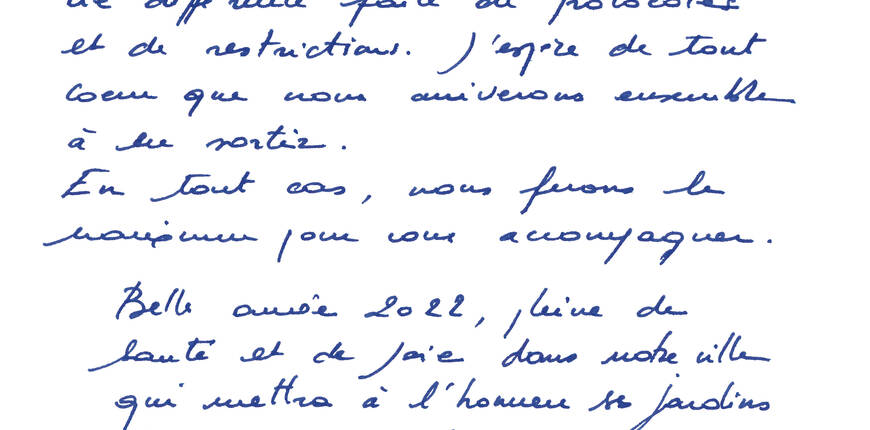 de différent faite de protocoles
et de restrictions. J'espère de tout
coeur que nous arriverons ensemble
à en sortir.
En tout cas, nous ferons le
maximum pour vous accompagner.
Belle année 2022, pleine de
santé et de joie dans notre ville
qui mettra à l'honneur ses jardins